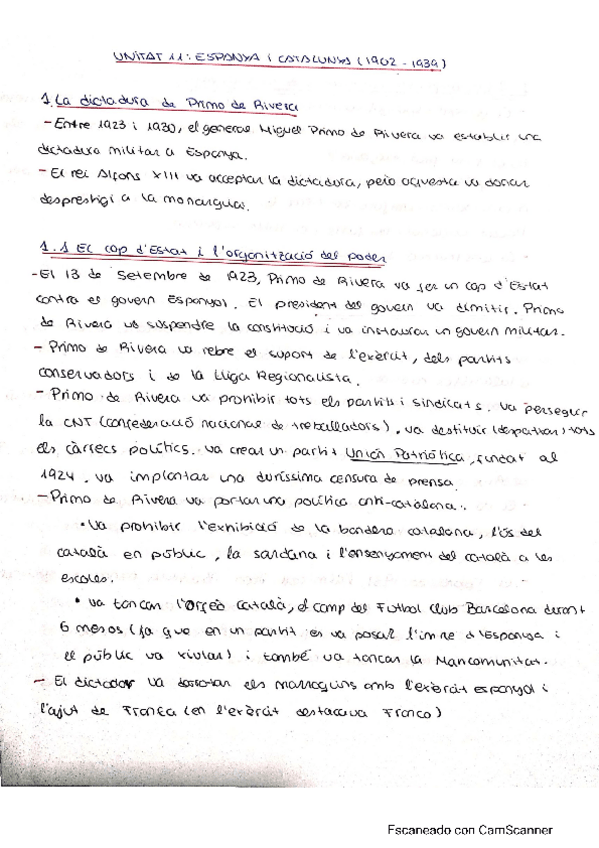 UNITAT 11: ESPANYA I CATALUNYA (1902-1939)
1. La dictadura de Primo de Rivera
- Entre 1923 i 1930, el general Miguel Primo de Rivera va establir una
dictadura militar a Espanya.
- El rei Alfons XIII va acceptar la dictadura, però aquesta va donar
desprestigi a la monarquia.
1.1 El cop d'Estat i l'organització del poder
- El 13 de setembre de 1923, Primo de Rivera va fer un cop d'Estat
contra el govern Espanyol. El president del govern va dimitir. Primo
de Rivera va suspendre la constitució i va instaurar un govern militar.
- Primo de Rivera va rebre el suport de l'exèrcit, dels partits
conservadors i de la Lliga Regionalista.
- Primo de Rivera va prohibir tots els partits i sindicats. Va perseguir
la CNT (confederació nacional de treballadors). va destituir (despatxar) tots
els càrrecs polítics. va crear un partit Unión Patriótica, fundat al
1924. va implantar una duríssima censura de premsa.
- Primo de Rivera va portar una política anti-catalana.
• Va prohibir l'exhibició de la bandera catalana, l'ús del
català en públic, la sardana i l'ensenyament del català a les
escoles.
• va tancar l'orfeó català, el camp del Futbol Club Barcelona durant
6 mesos (ja que en un partit es va posar l'imne d'Espanya i
el públic va xiular) i també va tancar la Mancomunitat.
- El dictador va derrotar els marroquins amb l'exèrcit espanyol i
l'ajut de França (en l'exèrcit destacava Franco)
Escaneado con CamScanner